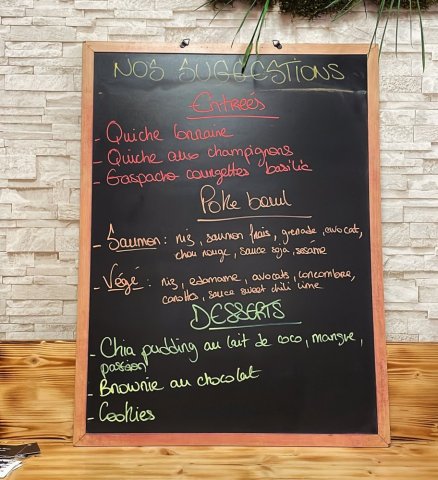 NOS SUGGESTIONS
Entrées
- Quiche lorraine
- Quiche aux champignons
- Gaspacho courgettes basilic
Poke bowl
- Saumon : riz, saumon frais, grenade, avocat,
chou rouge, sauce soja, sesame
- Végé : riz, edamame, avocats, concombre,
carotte, sauce sweet chili lime
DESSERTS
- Chia pudding au lait de coco, mangue,
passion
- Brownie au chocolat
- Cookies